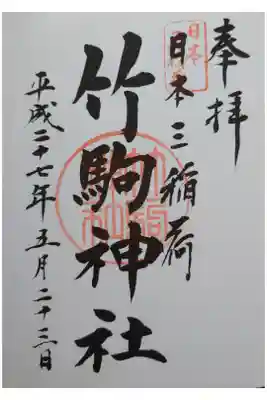 奉拝
日本三稲荷
竹駒神社
平成二十七年五月二十三日